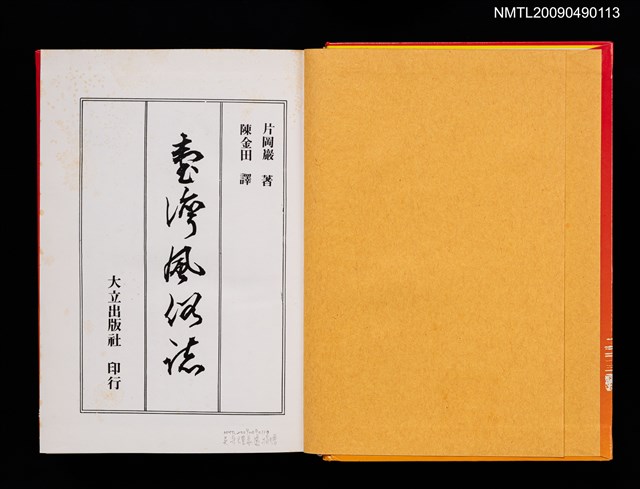 NMTL20090490113
片岡巖 著
陳金田 譯
臺灣風俗誌
大立出版社 印行